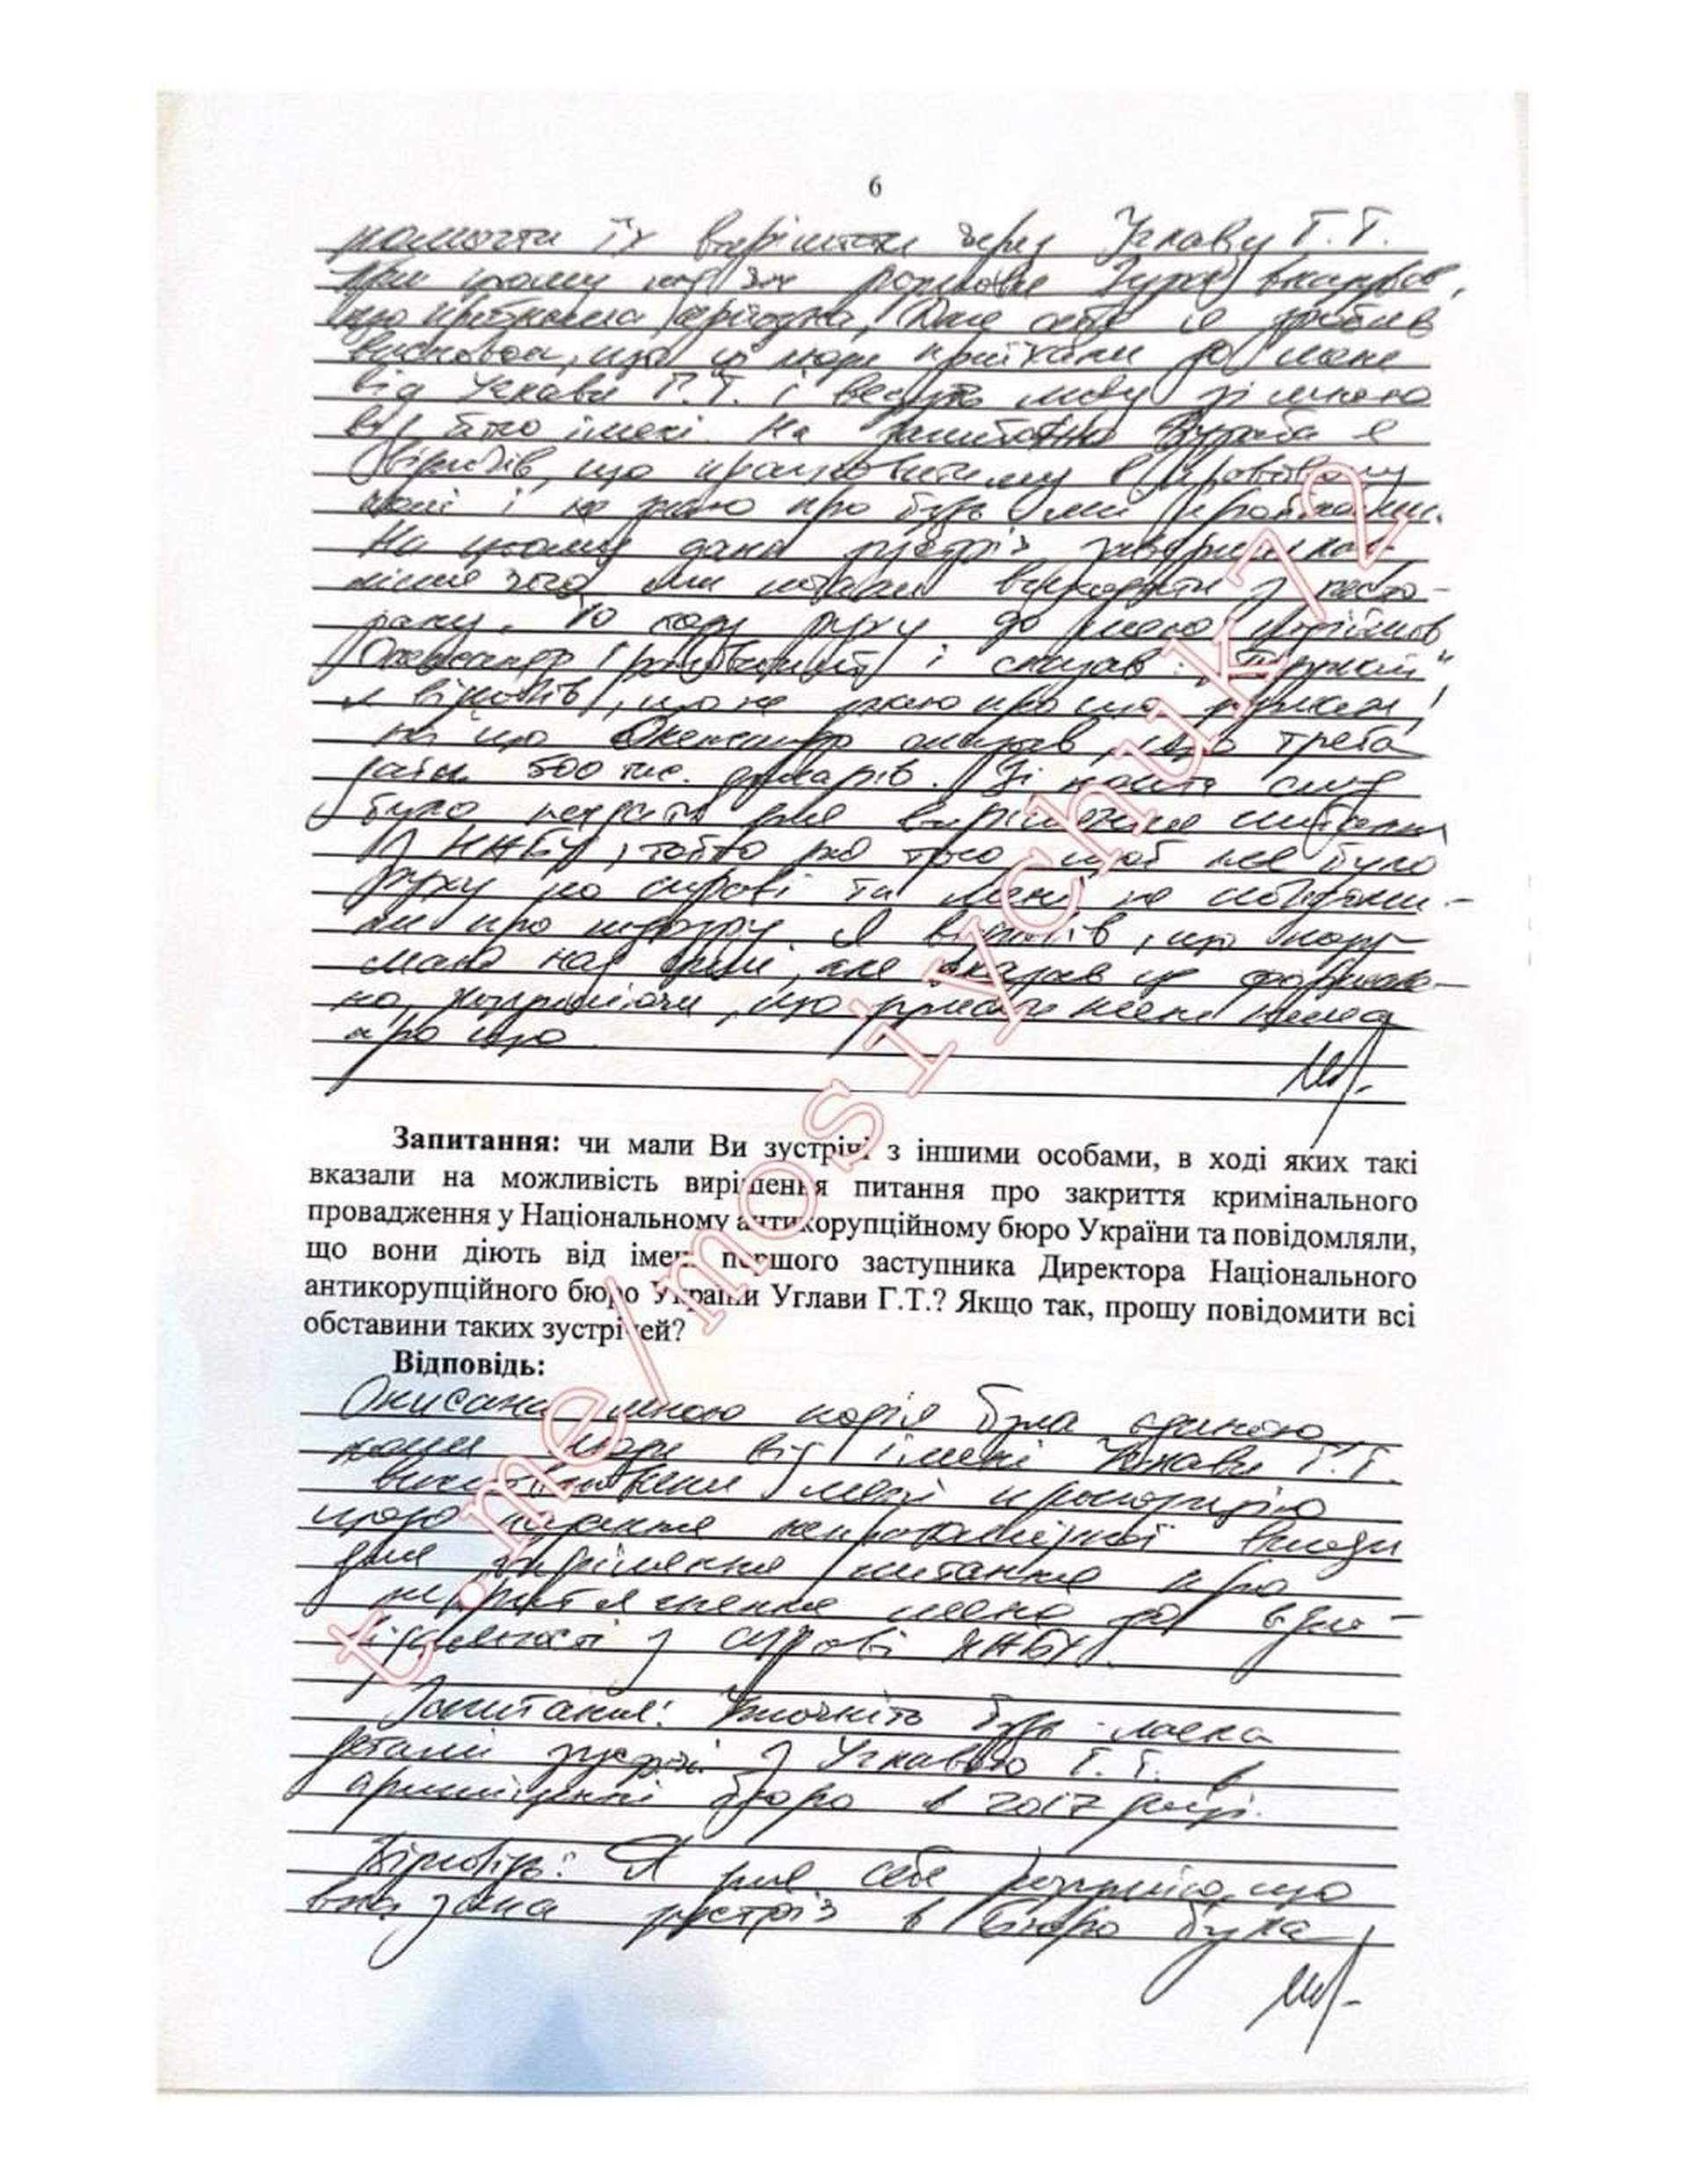 6
помогти їх вирішити через Углаву Г.Т.
При цьому під час розмови Зураб вказував,
що проблема серйозна. Для себе я зробив
висновок, що ці люди приїхали до мене
від Углави Г.Т. і ведуть мову зі мною
від його імені. На запитання Зураба я
відповів, що працюватиму в правовому
полі і не знаю про будь які проблеми.
На цьому дана зустріч завершилась
після чого ми почали виходити з ресто-
рану. По ходу руху до мене підійшов
Олександр і сказав:
я відповів, що не знаю про що думати,
на що Олександр сказав, що треба
дати 500 тис. доларів. Ці кошти слід
було передати для вирішення питання
з НАБУ, тобто для того щоб не було
руху по справі та мені не повідоми-
ли про підозру. Я відповів, що поду-
маю над цим, але сказав це формаль-
но, розуміючи, що
про що.
Запитання: чи мали Ви зустрічі з іншими особами, в ході яких такі
вказали на можливість вирішення питання про закриття кримінального
провадження у Національному антикорупційному бюро України та повідомляли,
що вони діють від імені першого заступника Директора Національного
антикорупційного бюро України Углави Г.Т.? Якщо так, прошу повідомити всі
обставини таких зустрічей?
Відповідь:
Описана мною подія була єдиною
коли люди від імені Углави Г.Т.
висловлювали мені пропозицію
щодо надання неправомірної вигоди
для вирішення питання про
не притягнення мене до відпо-
відальності у справі НАБУ.
Запитання: Уточніть будь-ласка
деталі зустрічі з Углавою Г.Т. в
приміщенні бюро в 2017 році.
Відповідь: Я для себе розумію, що
вказана зустріч в бюро була
t.me/mosiychuk72